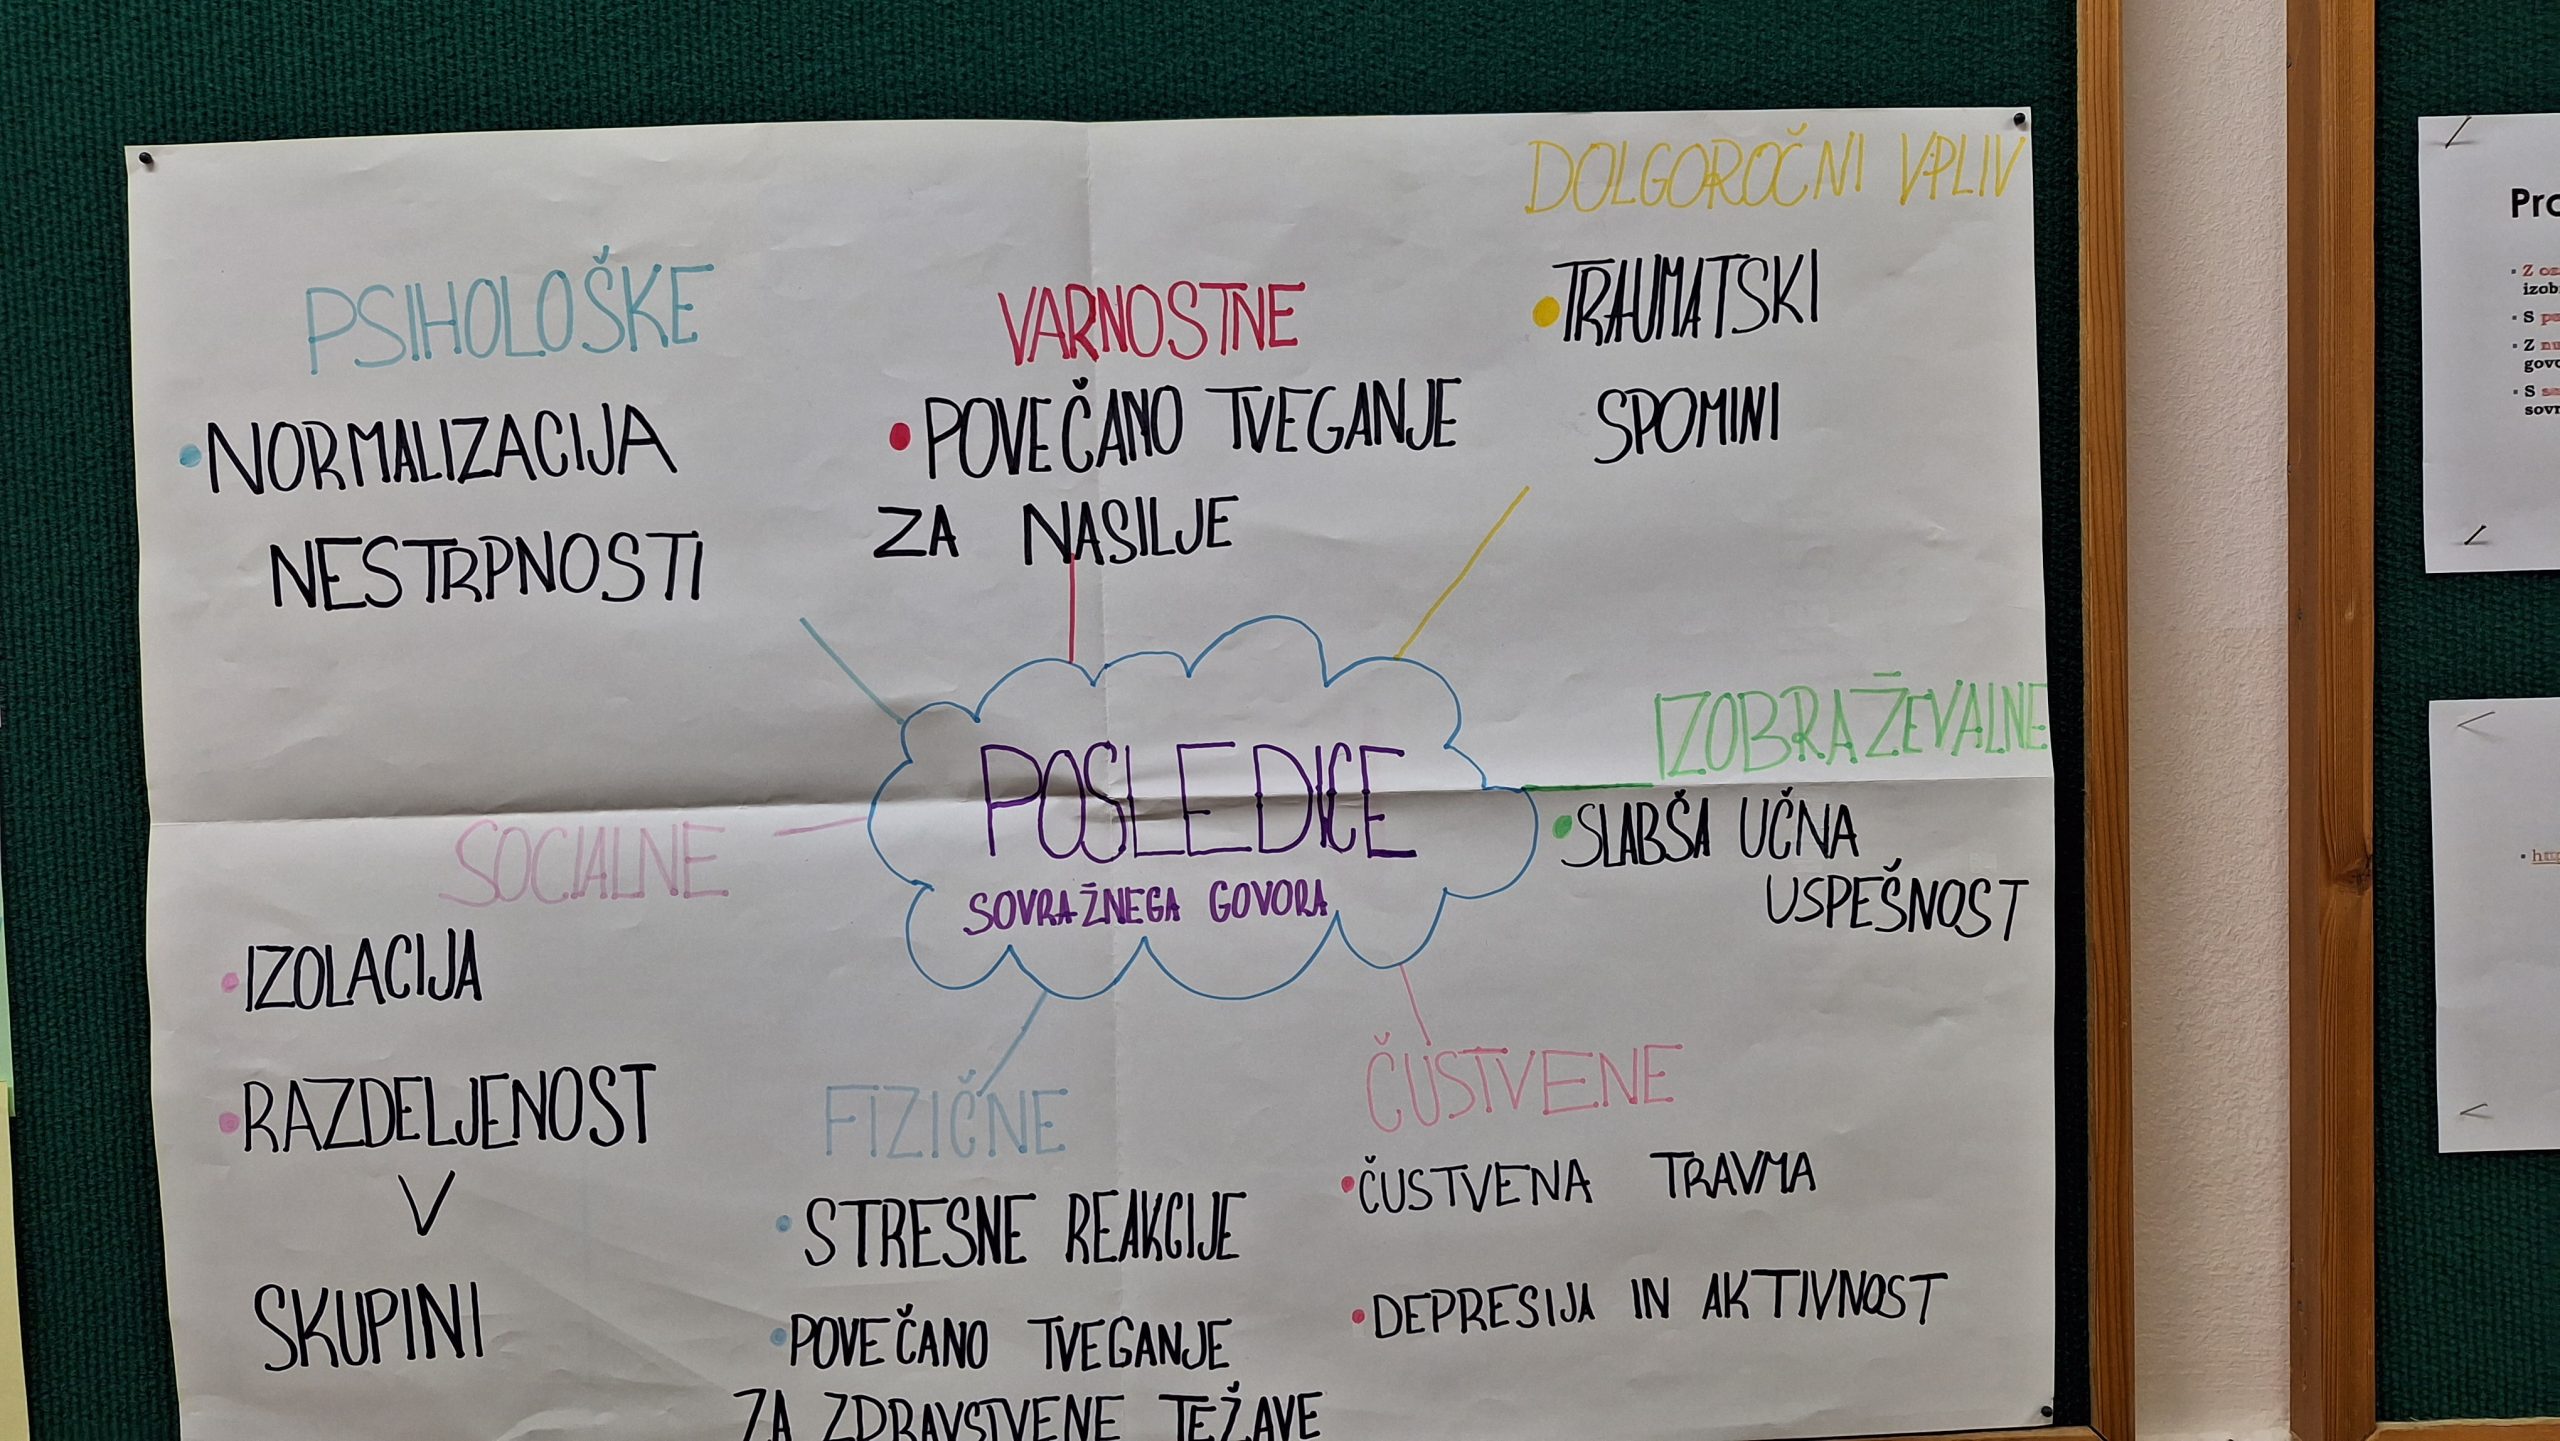 DOLGOROČNI VPLIV
• TRAUMATSKI
SPOMINI
PSIHOLOŠKE
• NORMALIZACIJA
NESTRPNOSTI
VARNOSTNE
• POVEČANO TVEGANJE
ZA NASILJE
POSLEDICE
SOVRAŽNEGA GOVORA
IZOBRAŽEVALNE
• SLABŠA UČNA
USPEŠNOST
SOCIALNE
• IZOLACIJA
• RAZDELJENOST
V
SKUPINI
FIZIČNE
• STRESNE REAKCIJE
• POVEČANO TVEGANJE
ZA ZDRAVSTVENE TEŽAVE
ČUSTVENE
• ČUSTVENA TRAVMA
• DEPRESIJA IN AKTIVNOST
• Z
• S
• Z
• S